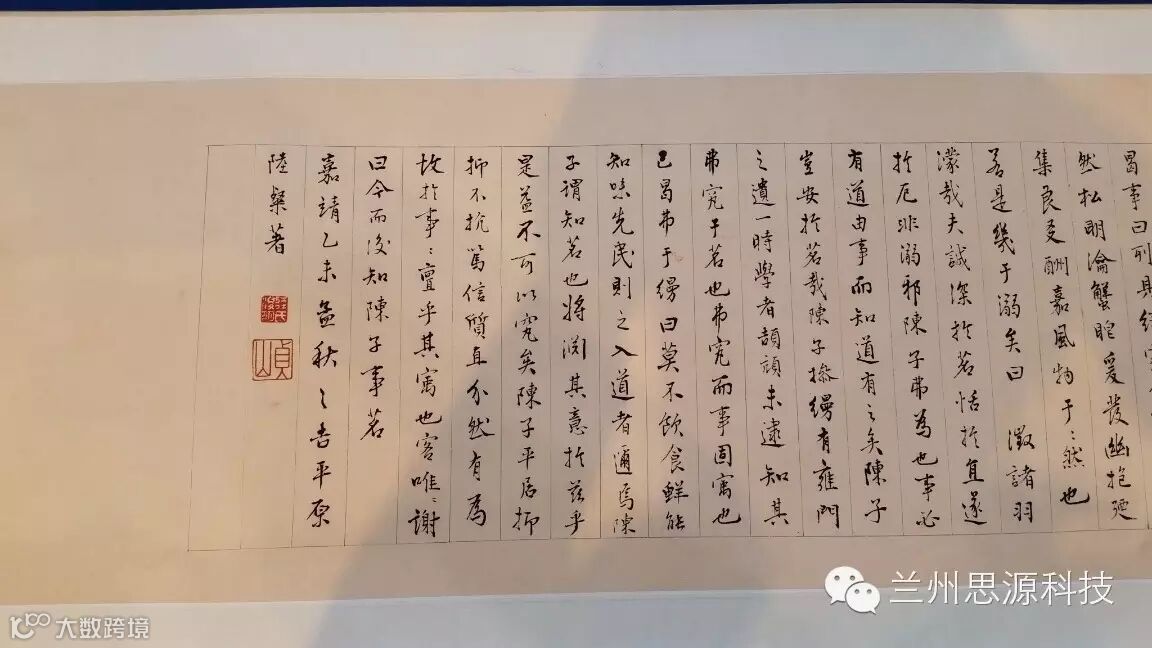 然松明瀹蟹眼爰發幽抱迺
集良友酬嘉風物于〻然也
若是幾于溺矣曰 徵諸羽
濛哉夫誠深於茗恬於宜遂
於厄非溺邪陳子弗為也事必
有道由事而知道有之矣陳子
豈安於茗哉陳子操縵有雍門
之遺一時學者頡頏未逮知其
弗究于茗也弗究而事固寓也
已曷弗于縵曰莫不飲食鮮能
知味先民則之入道者邇焉陳
子謂知茗也將淵其意於茲乎
是益不可以究矣陳子平居抑
抑不抗篤信質直介然有為
故於事〻亶乎其寓也客唯〻謝
曰今而後知陳子事茗
嘉靖乙未孟秋之吉平原
陸粲著
貞山
兰州思源科技
大数跨境